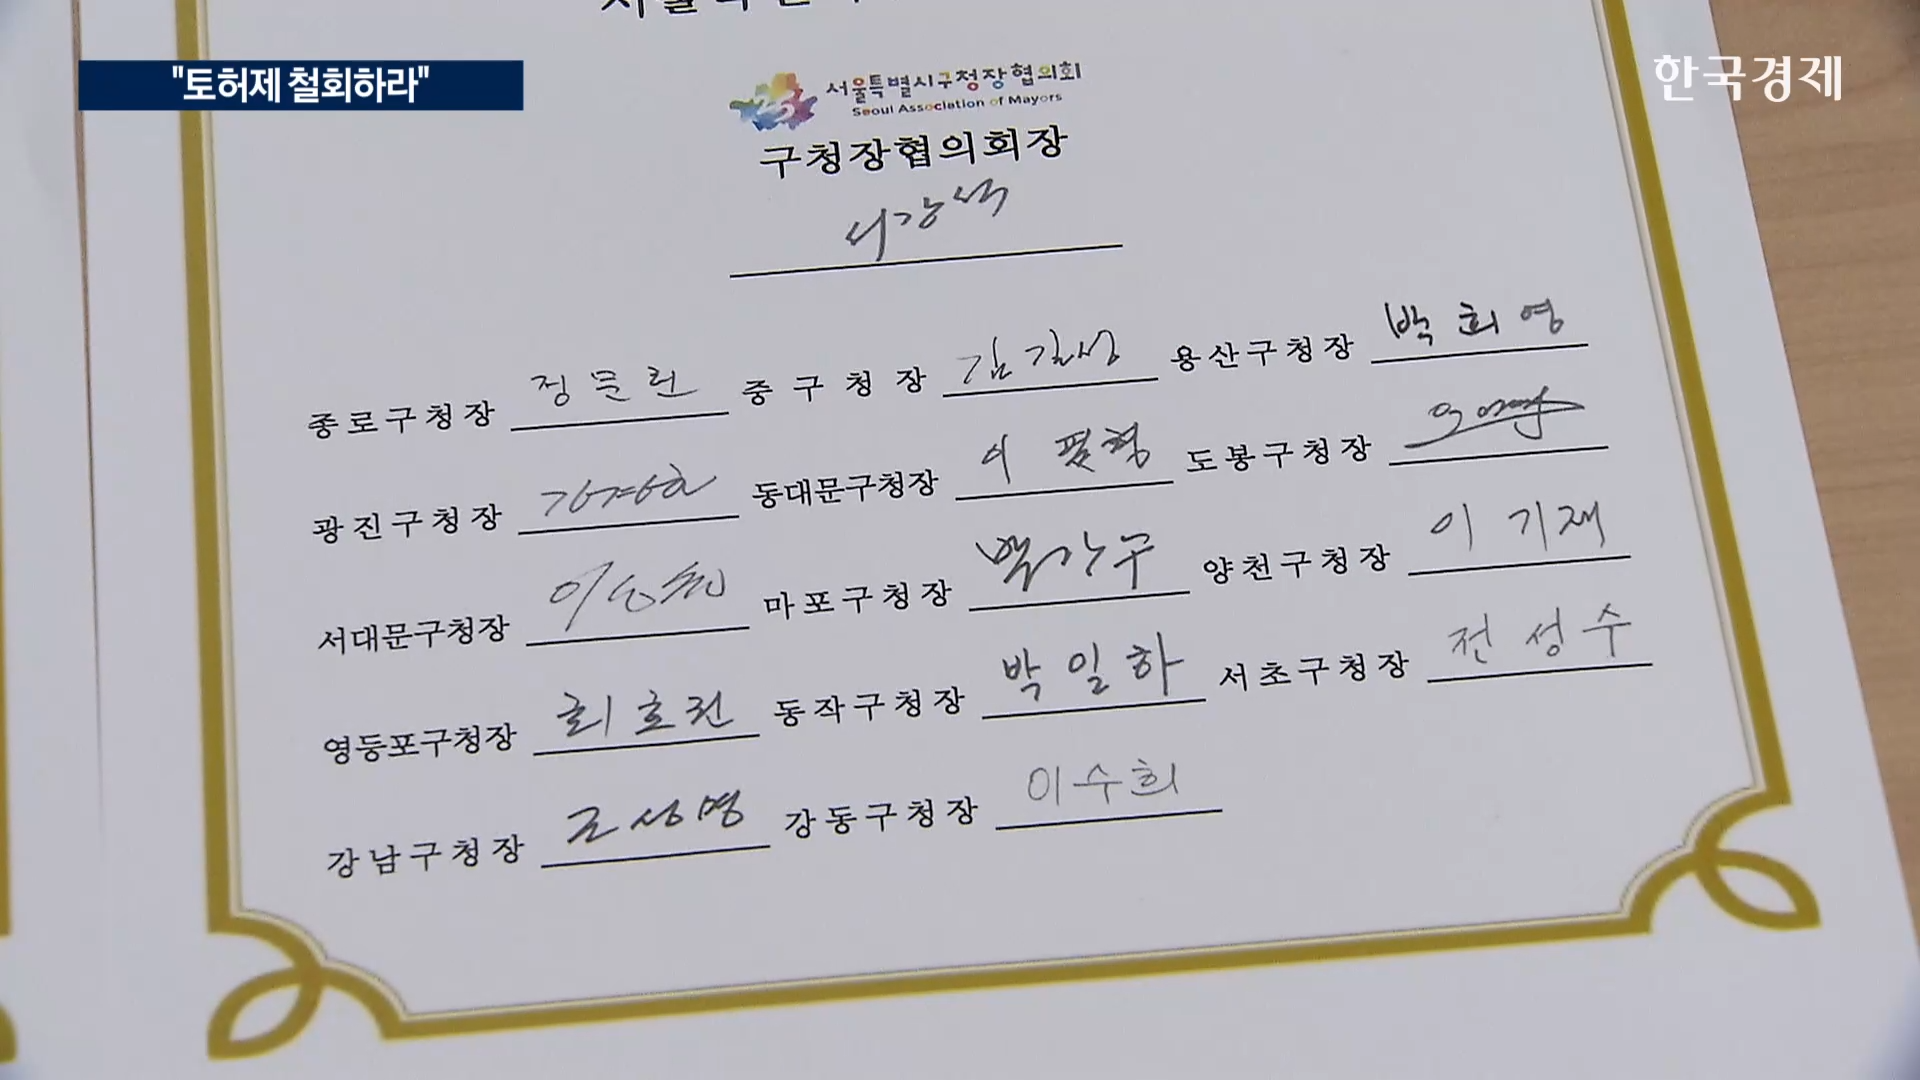 "토허제 철회하라"
한국경제
서울특별시구청장협의회
Seoul Association of Mayors
구청장협의회장
서강석
종로구청장 정문헌 중구청장 김길성 용산구청장 박희영
광진구청장 김경호 동대문구청장 이필형 도봉구청장
서대문구청장 이성헌 마포구청장 박강수 양천구청장 이기재
영등포구청장 최호권 동작구청장 박일하 서초구청장 전성수
강남구청장 조성명 강동구청장 이수희